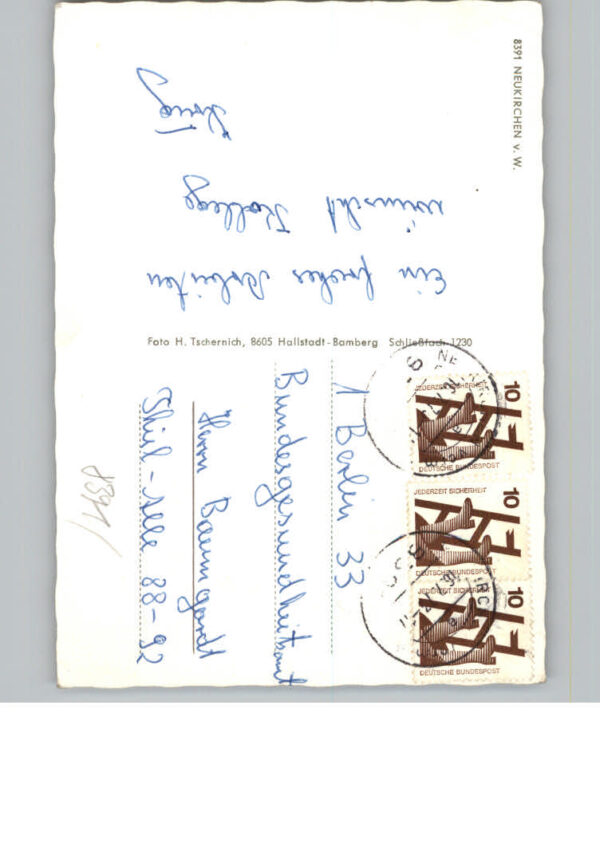 8391 NEUKIRCHEN v. W.
Ein frohes Arbeiten
wünscht Kollege
Foto H. Tschernich, 8605 Hallstadt-Bamberg Schließfach 1230
JEDERZEIT SICHERHEIT
10
DEUTSCHE BUNDESPOST
JEDERZEIT SICHERHEIT
10
DEUTSCHE BUNDESPOST
JEDERZEIT SICHERHEIT
10
DEUTSCHE BUNDESPOST
1 Berlin 33
Bundesgesundheitsamt
Herrn Baumgardt
Thiel-Allee 88-92
8391/